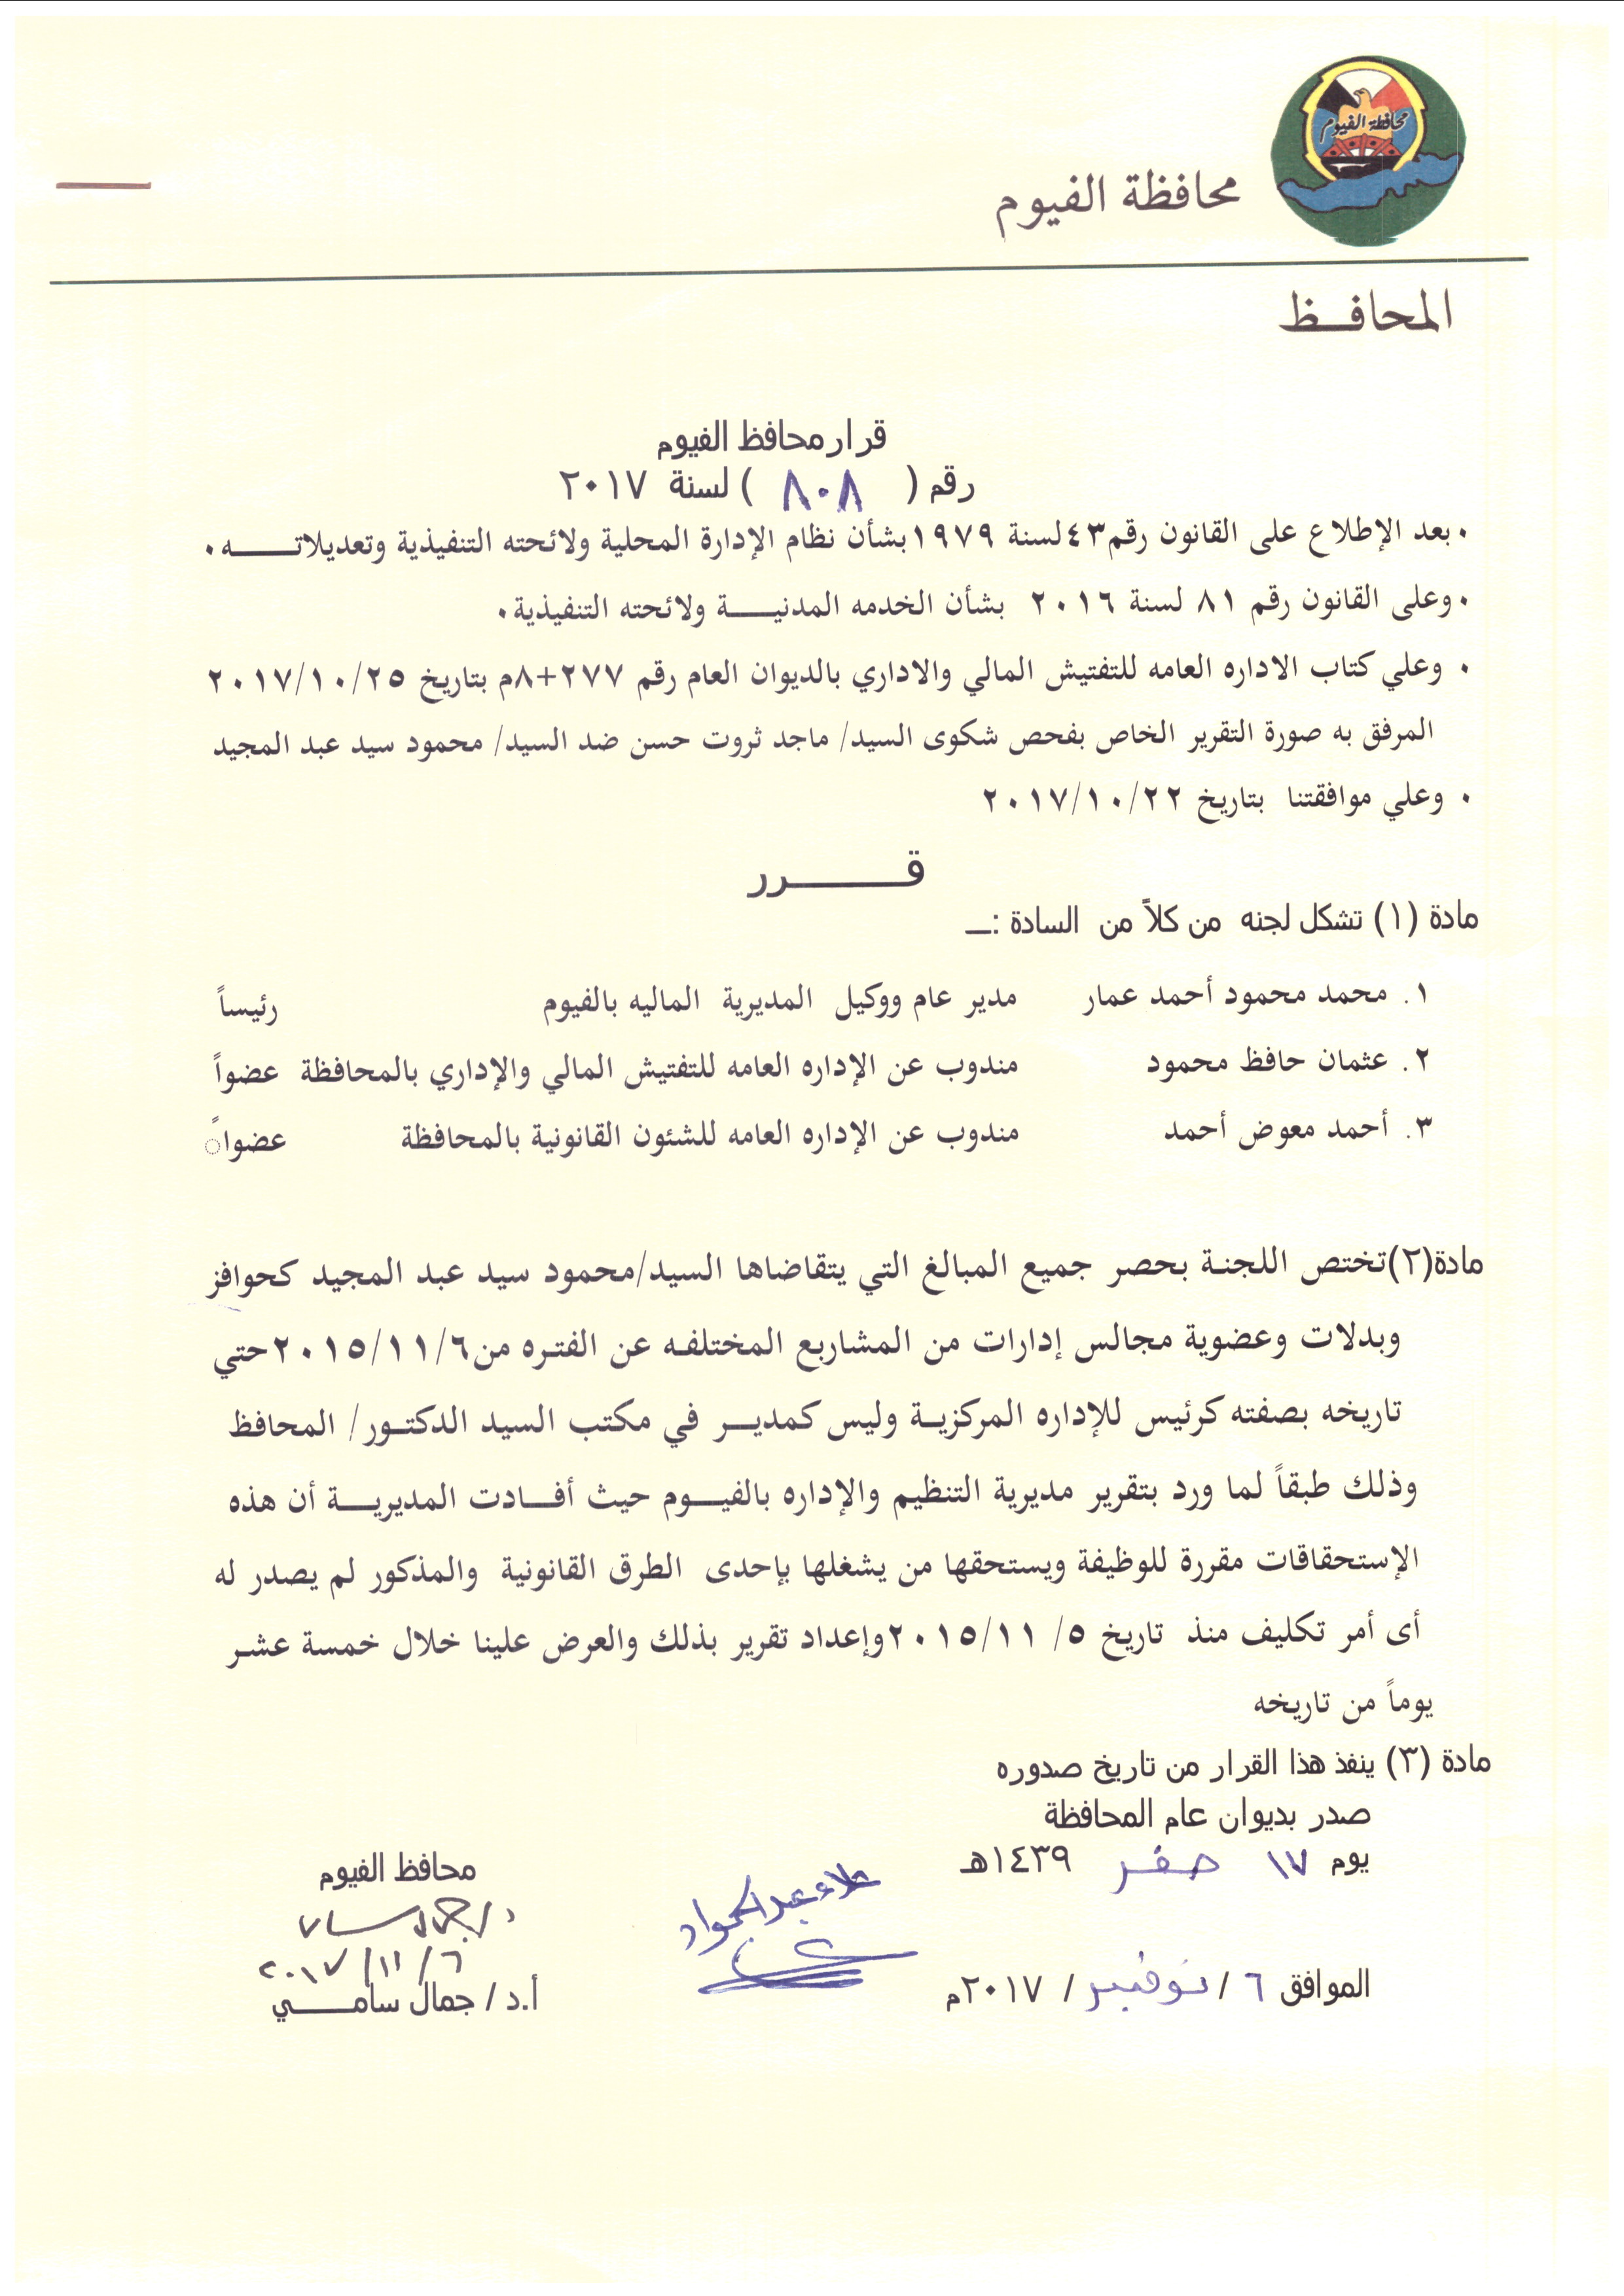 محافظة الفيوم
محافظة الفيوم
المحافــظ
قرار محافظ الفيوم
رقم ( ٨٠٨ ) لسنة ٢٠١٧
٠ بعد الإطلاع على القانون رقم٤٣لسنة ١٩٧٩بشأن نظام الإدارة المحلية ولائحته التنفيذية وتعديلاتــــه٠
٠ وعلى القانون رقم ٨١ لسنة ٢٠١٦ بشأن الخدمه المدنيــــة ولائحته التنفيذية٠
٠ وعلي كتاب الاداره العامه للتفتيش المالي والاداري بالديوان العام رقم ٢٧٧+٨م بتاريخ ٢٠١٧/١٠/٢٥
المرفق به صورة التقرير الخاص بفحص شكوى السيد/ ماجد ثروت حسن ضد السيد/ محمود سيد عبد المجيد
٠ وعلي موافقتنا بتاريخ ٢٠١٧/١٠/٢٢
قـــــــرر
مادة (١) تشكل لجنه من كلاً من السادة :ــ
١. محمد محمود أحمد عمار مدير عام ووكيل المديرية الماليه بالفيوم رئيساً
٢. عثمان حافظ محمود مندوب عن الإداره العامه للتفتيش المالي والإداري بالمحافظة عضواً
٣. أحمد معوض أحمد مندوب عن الإداره العامه للشئون القانونية بالمحافظة عضواً
مادة(٢)تختص اللجنة بحصر جميع المبالغ التي يتقاضاها السيد/محمود سيد عبد المجيد كحوافز
وبدلات وعضوية مجالس إدارات من المشاريع المختلفه عن الفتره من٢٠١٥/١١/٦حتي
تاريخه بصفته كرئيس للإداره المركزيـة وليس كمديـــر في مكتب السيد الدكتـور/ المحافظ
وذلك طبقاً لما ورد بتقرير مديرية التنظيم والإداره بالفيــوم حيث أفــادت المديريــة أن هذه
الإستحقاقات مقررة للوظيفة ويستحقها من يشغلها بإحدى الطرق القانونية والمذكور لم يصدر له
أى أمر تكليف منذ تاريخ ٥/ ٢٠١٥/١١وإعداد تقرير بذلك والعرض علينا خلال خمسة عشـر
يوماً من تاريخه
مادة (٣) ينفذ هذا القرار من تاريخ صدوره
صدر بديوان عام المحافظة
يوم ١٧ صفر ١٤٣٩هـ
الموافق ٦ /نوفمبر/ ٢٠١٧م
علاء عبد الجواد
محافظ الفيوم
٢٠١٧/١١/٦
أ.د / جمال سامــــي